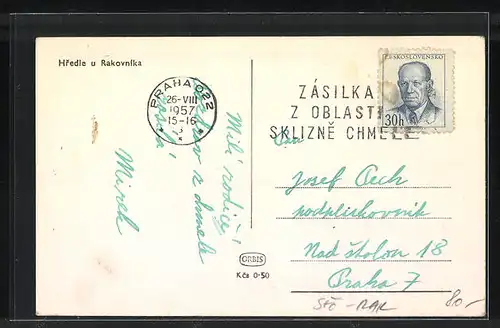 Hředle u Rakovníka
PRAHA 022
26-VIII
1957
15-16
ČESKOSLOVENSKO
30h
ZÁSILKA
Z OBLASTI
SKLIZNĚ CHMELE
Milí rodiče,
pozdrav z chmele
posílá
Mirek
Pan
Josef Čech
podplukovník
Nad štolou 18
Praha 7
ORBIS
Kčs 0·50
STČ - RAK
80,-